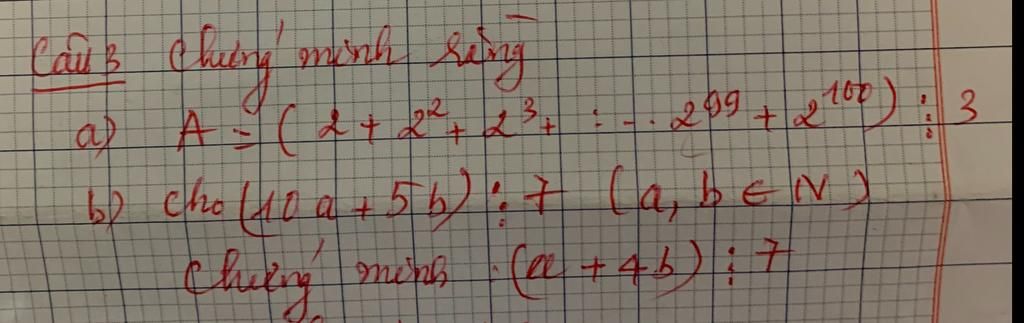 Câu 3 Chứng minh rằng
a) A = ( 2 + 2² + 2³ + ... 2⁹⁹ + 2¹⁰⁰) ⋮ 3
b) cho (10a + 5b) ⋮ 7 (a, b ∈ N)
Chứng minh (a + 4b) ⋮ 7